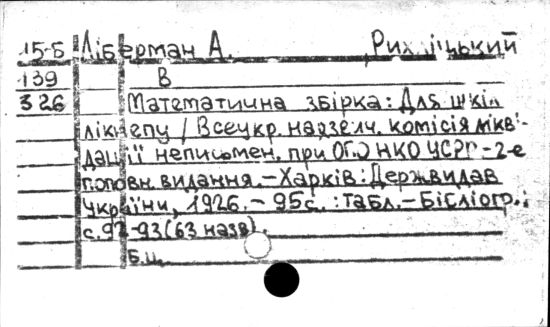 15-Б Ліберман А. Рихліцький
139 В
326 Математична збірка: Для шкіл
лікнепу / Всеукр. надзвич. комісія лікві-
дації неписьмен. при НКО УСРР-2-е
поповн. видання.-Харків: Держвидав
України, 1926.-95с.: табл.-Бібліогр.:
с.92-93(63 назв).
Б.ц.